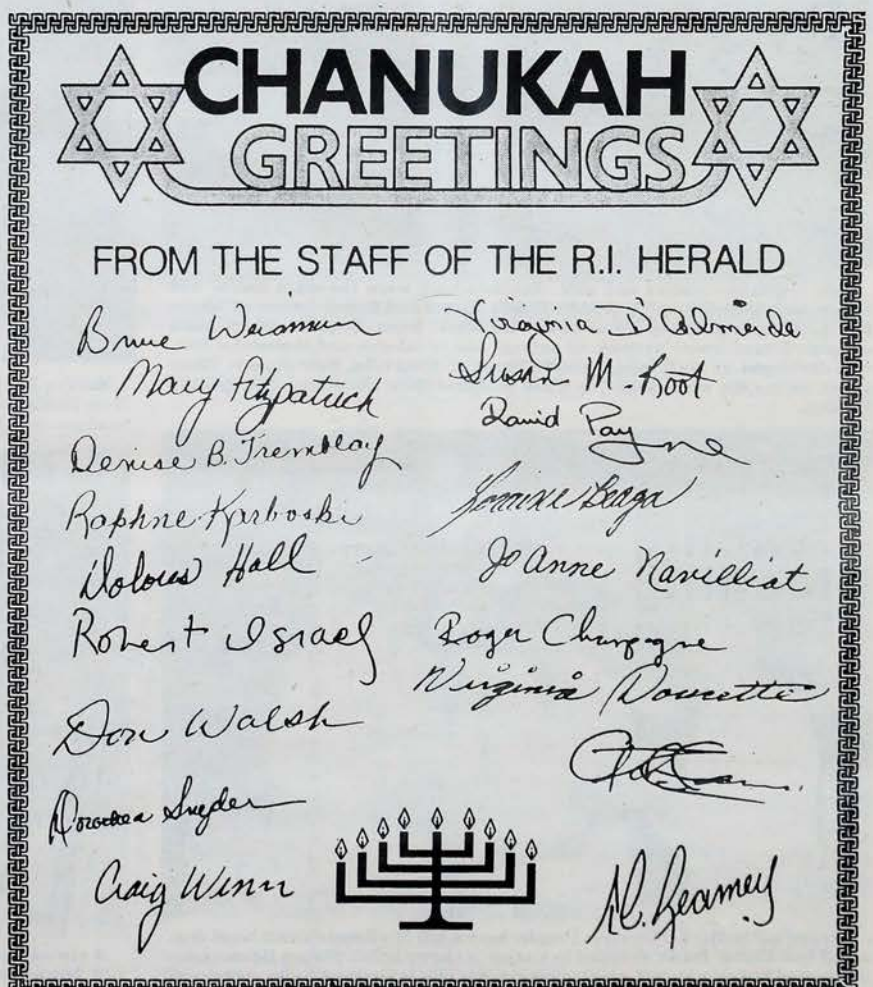 CHANUKAH
GREETINGS
FROM THE STAFF OF THE R.I. HERALD
Bruce Weisman
Mary Fitzpatrick
Denise B. Tremblay
Raphne Karboski
Dolores Hall
Robert Israel
Don Walsh
Dorothea Snyder
Craig Winn
Virginia D'Almeida
Susan M. Root
David Payne
JoAnne Navilliat
Roger Champagne
Virginia Doucette